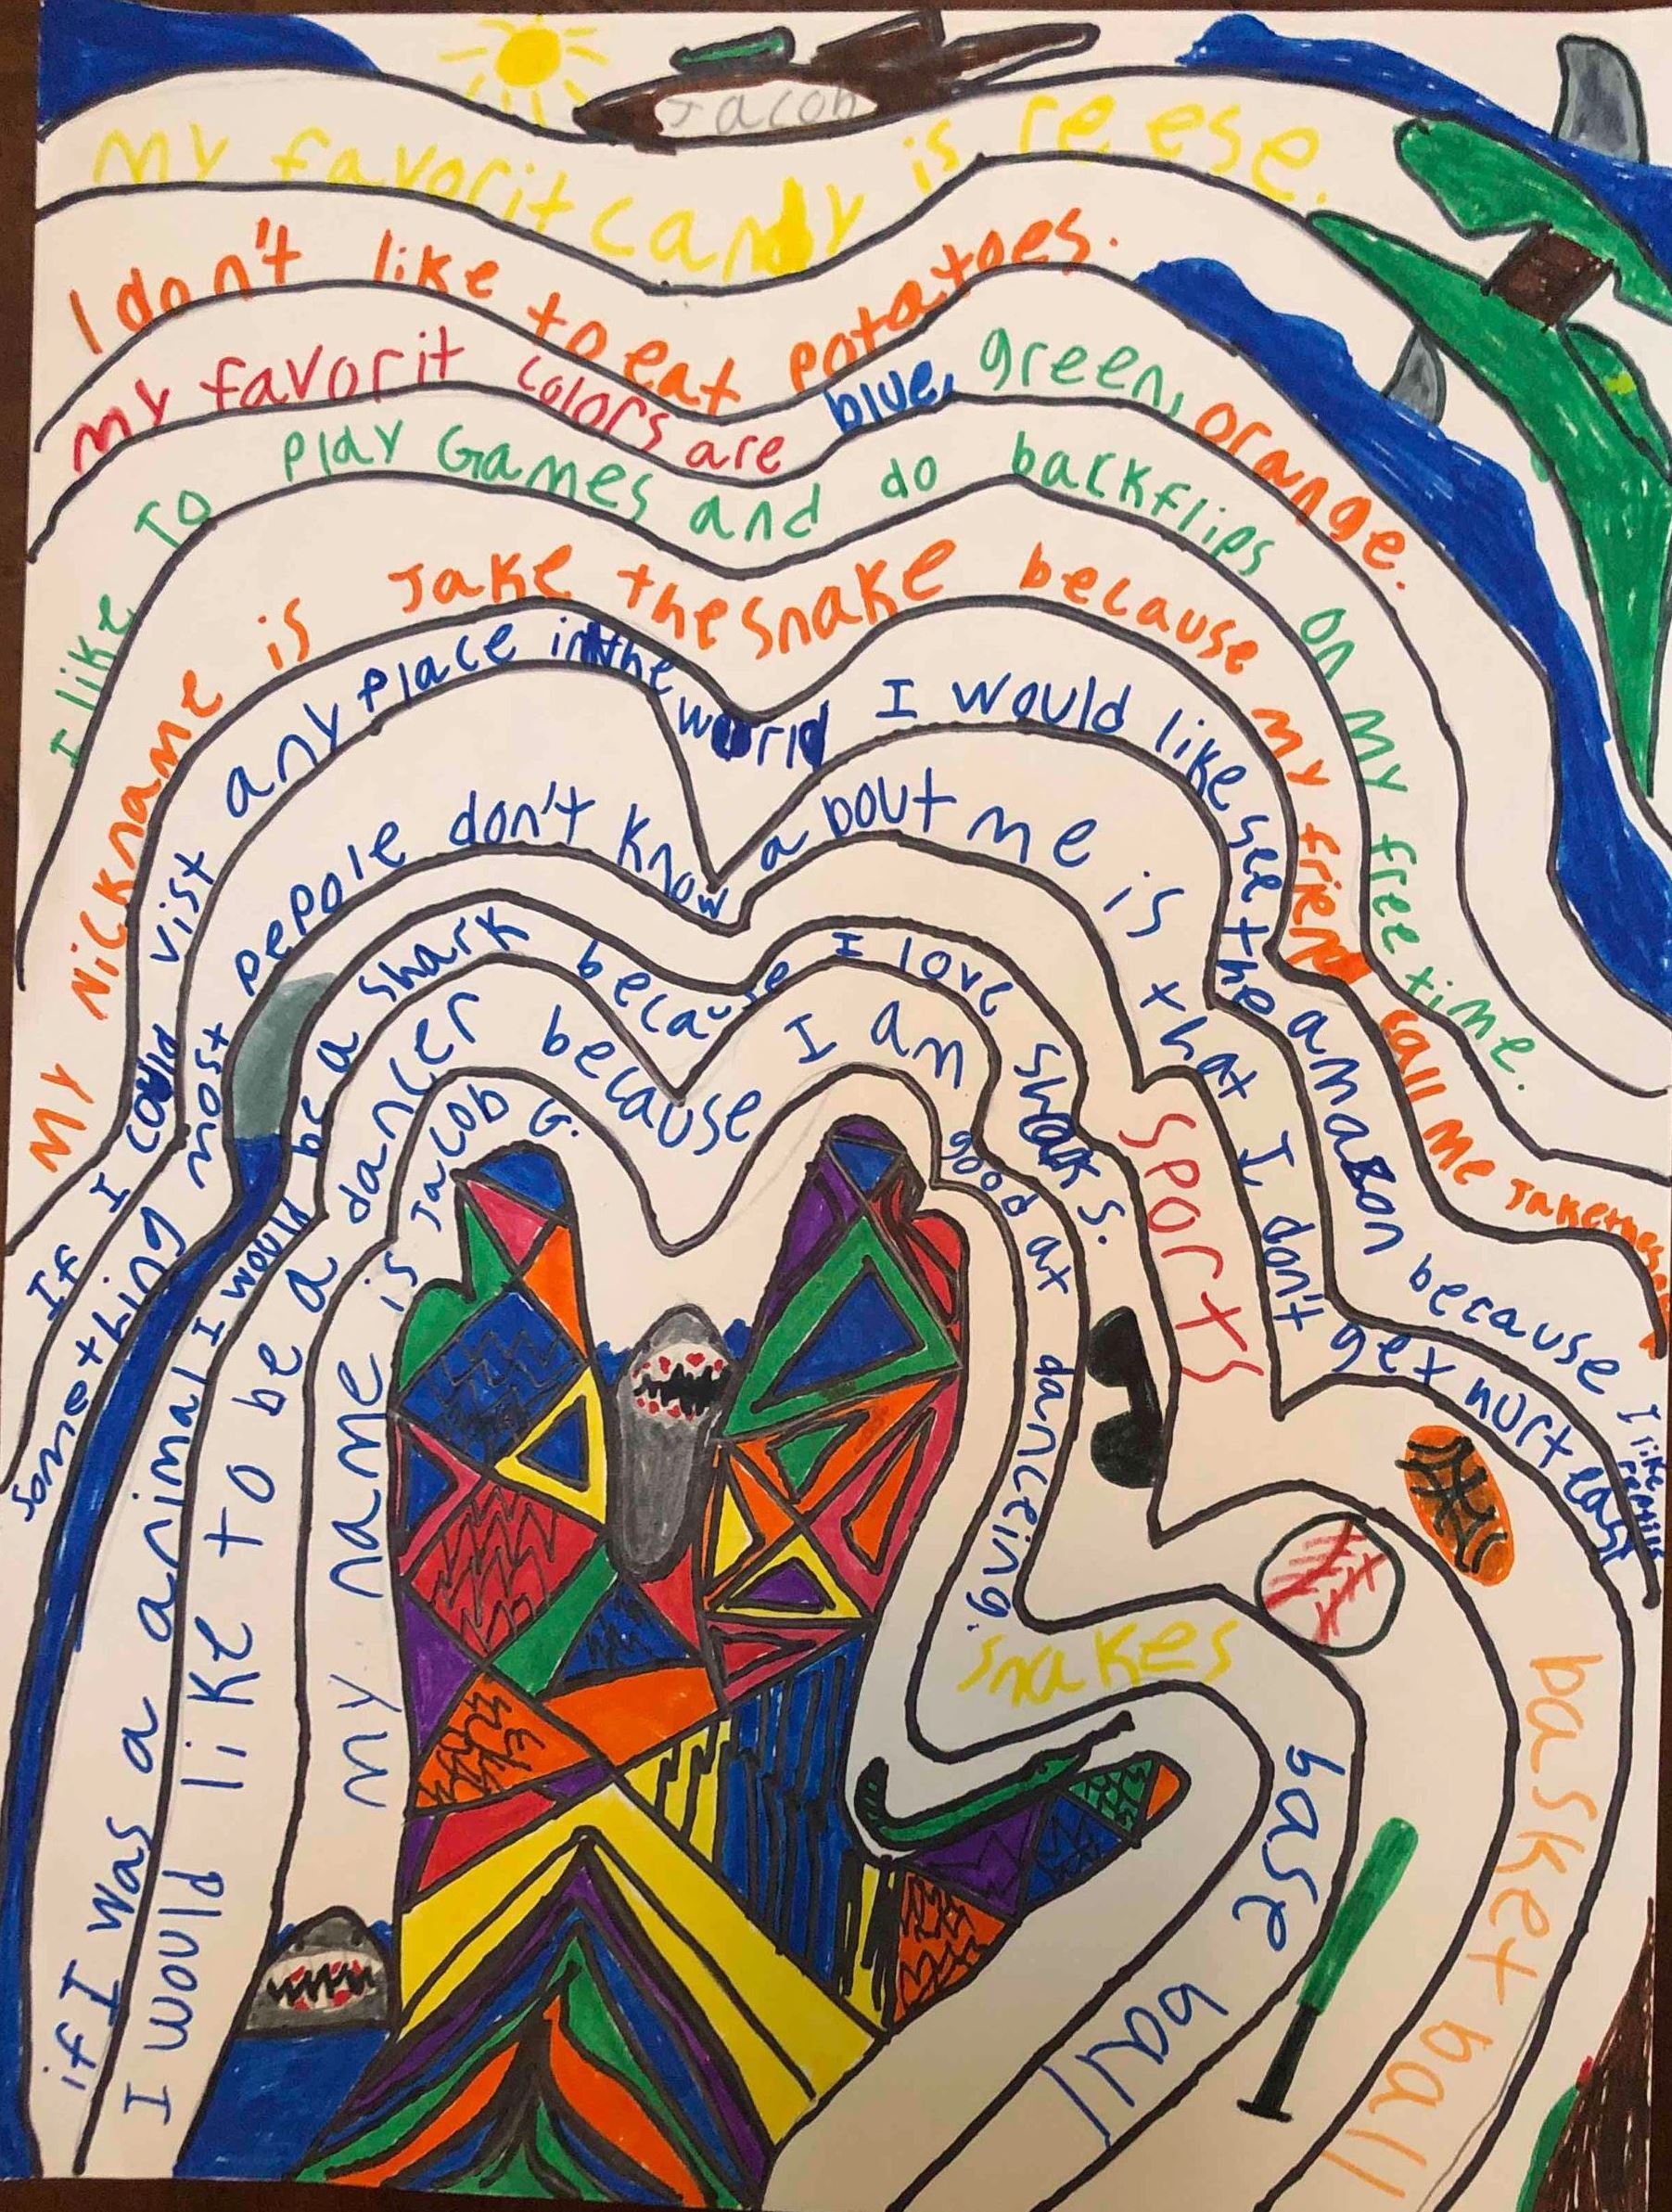 Jacob
my favorit candy is reese.
I don't like to eat potatoes.
my favorit colors are blue, green, orange.
I like To play Games and do backflips on my free time.
My Nickname is Jake the snake because my friend call me Jakethesnake
If I could vist any place in the world I would like see the amazon because I like reptils
something most pepole don't know a bout me is that I don't get hurt easy
if I was a animal I would be a shark because I love sharks.
I would like to be a dancer because I am good at danceing.
my name is Jacob G.
sports
snakes
base ball
basket ball